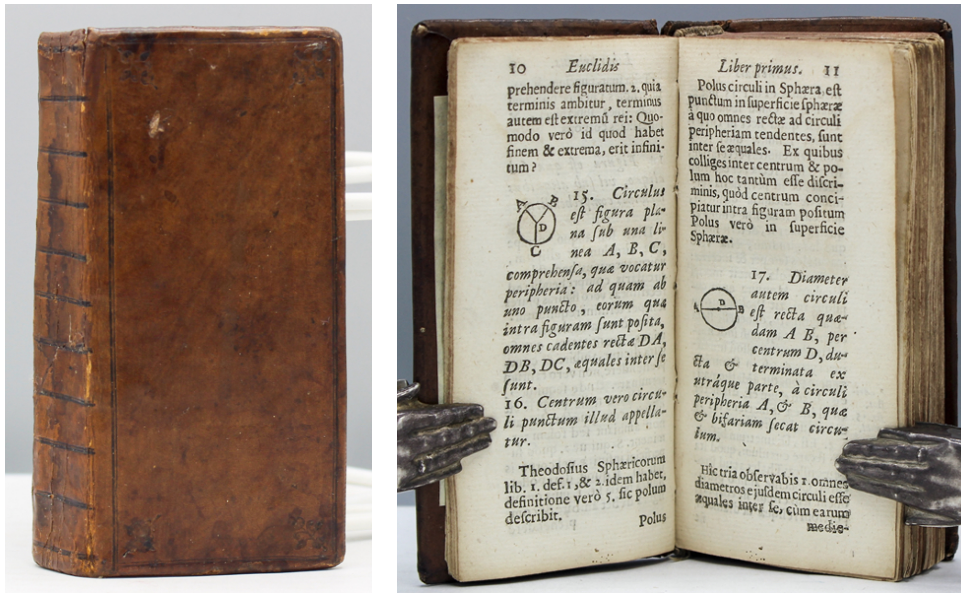 10 Euclidis
prehendere figuratum. 2. quia
terminis ambitur, terminus
autem est extremũ rei: Quo-
modo verò id quod habet
finem & extrema, erit infini-
tum?
A B
D
C
15. Circulus
est figura pla-
na sub una li-
nea A, B, C,
comprehensa, quæ vocatur
peripheria: ad quam ab
uno puncto, eorum quæ
intra figuram sunt posita,
omnes cadentes rectæ DA,
DB, DC, æquales inter se
sunt.
16. Centrum vero circu-
li punctum illud appella-
tur.
Theodosius Sphæricorum
lib. 1. def. 1, & 2. idem habet,
definitione verò 5. sic polum
describit.
Polus
Liber primus. 11
Polus circuli in Sphæra, est
punctum in superficie sphæræ
à quo omnes rectæ ad circuli
peripheriam tendentes, sunt
inter se æquales. Ex quibus
colliges inter centrum & po-
lum hoc tantùm esse discri-
minis, quòd centrum conci-
piatur intra figuram positum
Polus verò in superficie
Sphæræ.
A D B
17. Diameter
autem circuli
est recta quæ-
dam A B, per
centrum D, du-
cta & terminata ex
utráque parte, à circuli
peripheria A, & B, quæ
& bifariam secat circu-
lum.
Hic tria observabis 1. omnes
diametros ejusdem circuli esse
æquales inter se, cùm earum
medie-